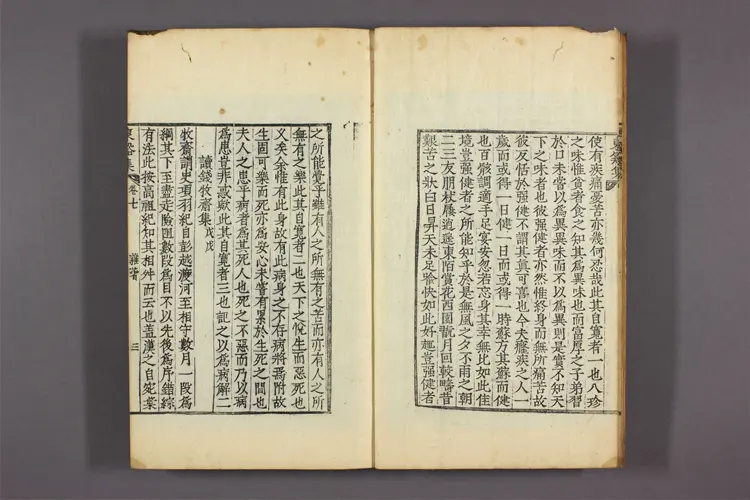 使有疾痛憂苦亦幾何忍哉此其自寬者一也八珍
之味惟貧者食之知其爲異味也而富厚之子弟習
於口未嘗以爲異異味而不以爲異則是實不知天
下之味者也彼强健者亦然惟終身而無所痛苦故
彼反恬於强健不謂其眞可喜也今夫癃疾之人一
歲而或得一日健一日而或得一時蘇方其蘇而健
也百骸調適手足宴安忽若忘身其幸無比如此佳
境豈强健者之所能知乎於是無風之夕不雨之朝
二三友朋杖屨逍遙東陌賞花西園翫月回較疇昔
艱苦之狀曰日昇天未足喩快如此好趣豈强健者
之所能覺乎雖有人之所無有之苦而亦有人之所
無有之樂此其自寬者二也天下之悅生而惡死也
久矣余惟有此身故有此病身之不存病將焉附故
生固可樂而死亦爲安心未嘗有累於生死之間也
夫人之患乎病者爲其死人也死之不惡而乃以病
爲患豈非惑歟此其自寬者三也記之以爲病解二
讀錢牧齋集戊戌
牧齋謂史項羽紀自彭越渡河至相守數月一段爲
綱其下至盡走險阻數段爲目不以先後爲序錯綜
有法此按高祖紀知其相舛而云也盖漢之自宛葉
集
卷七
雜著
三